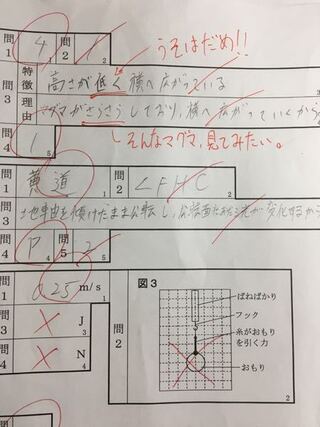 問1 4 問2 1 うそはだめ!!
問3 特徴 高さが低く横へ広がっている
理由 マグマがさらさらしており、横へ広がっていくから
問4 1 そんなマグマ、見てみたい。
問1 黄道 問2 ∠FHC
問3 地軸を傾けたまま公転し、
問4 P 問5 2
問1 0.25 m/s 問2 図3
ばねばかり
フック
糸がおもりを引く力
おもり
問3 J
問4 N